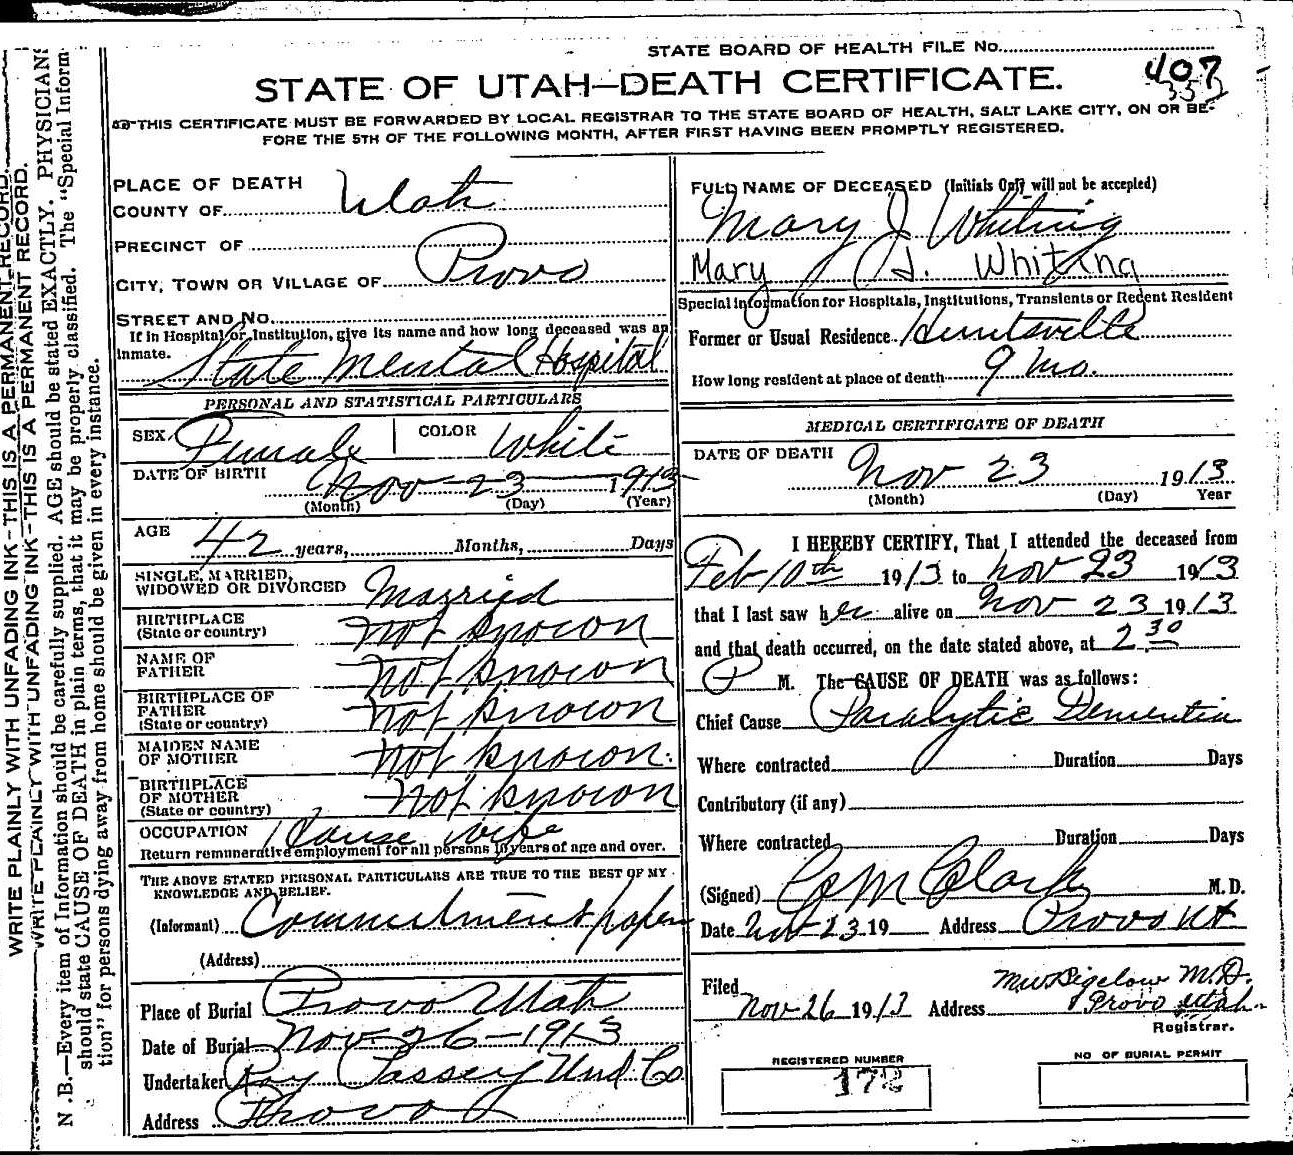 STATE BOARD OF HEALTH FILE No.
STATE OF UTAH—DEATH CERTIFICATE.
407
THIS CERTIFICATE MUST BE FORWARDED BY LOCAL REGISTRAR TO THE STATE BOARD OF HEALTH, SALT LAKE CITY, ON OR BE-
FORE THE 5TH OF THE FOLLOWING MONTH, AFTER FIRST HAVING BEEN PROMPTLY REGISTERED.
WRITE PLAINLY WITH UNFADING INK—THIS IS A PERMANENT RECORD.
WRITE PLAINLY WITH UNFADING INK—THIS IS A PERMANENT RECORD.
N.B.—Every item of Information should be carefully supplied. AGE should be stated EXACTLY. PHYSICIANS
should state CAUSE OF DEATH in plain terms, that it may be properly classified. The "Special Inform
tion" for persons dying away from home should be given in every instance.
PLACE OF DEATH
COUNTY OF Utah
PRECINCT OF
CITY, TOWN OR VILLAGE OF Provo
STREET AND No.
If in Hospital or Institution, give its name and how long deceased was an
inmate. State Mental Hospital
PERSONAL AND STATISTICAL PARTICULARS
SEX Female COLOR White
DATE OF BIRTH Nov 23 1913
(Month) (Day) (Year)
AGE 42 years, Months, Days
SINGLE, MARRIED,
WIDOWED OR DIVORCED Married
BIRTHPLACE
(State or country) not known
NAME OF
FATHER not known
BIRTHPLACE OF
FATHER
(State or country) not known
MAIDEN NAME
OF MOTHER not known.
BIRTHPLACE
OF MOTHER
(State or country) not known
OCCUPATION House wife
Return remunerative employment for all persons 10 years of age and over.
THE ABOVE STATED PERSONAL PARTICULARS ARE TRUE TO THE BEST OF MY
KNOWLEDGE AND BELIEF.
(Informant) Commitment papers
(Address)
Place of Burial Provo Utah
Date of Burial Nov-26-1913
Undertaker Ray Passey Und. Co
Address Provo
FULL NAME OF DECEASED (Initials Only will not be accepted)
Mary J Whiting
Mary J. Whiting
Special information for Hospitals, Institutions, Transients or Recent Resident
Former or Usual Residence Huntsville
How long resident at place of death 9 mo.
MEDICAL CERTIFICATE OF DEATH
DATE OF DEATH Nov 23 1913
(Month) (Day) Year
I HEREBY CERTIFY, That I attended the deceased from
Feb 10th 1913 to Nov 23 1913
that I last saw her alive on Nov 23 1913
and that death occurred, on the date stated above, at 2 30
P M. The CAUSE OF DEATH was as follows:
Chief Cause Paralytic Dementia
Where contracted Duration Days
Contributory (if any)
Where contracted Duration Days
(Signed) Clark M.D.
Date Nov 23 19 Address Provo Ut
Filed Nov 26 1913 Address MW Bigelow M.D.
Provo Utah
Registrar.
REGISTERED NUMBER
172
NO OF BURIAL PERMIT